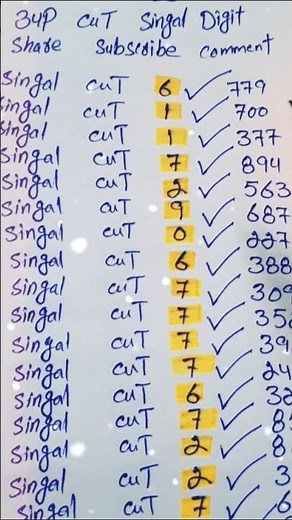 34P cuT Singal Digit
Share Subscribe comment
Singal cuT 6 779
Singal cuT 1 700
Singal cuT 1 377
Singal cuT 7 894
Singal cuT 2 563
Singal cuT 9 687
Singal cuT 0 227
Singal cuT 6 388
Singal cuT 7 309
Singal cuT 7 352
Singal cuT 7 39
Singal cuT 7 24
Singal cuT 6 32
Singal cuT 7 8
Singal cuT 2 8
Singal cuT 2 3
Singal cuT 7 6